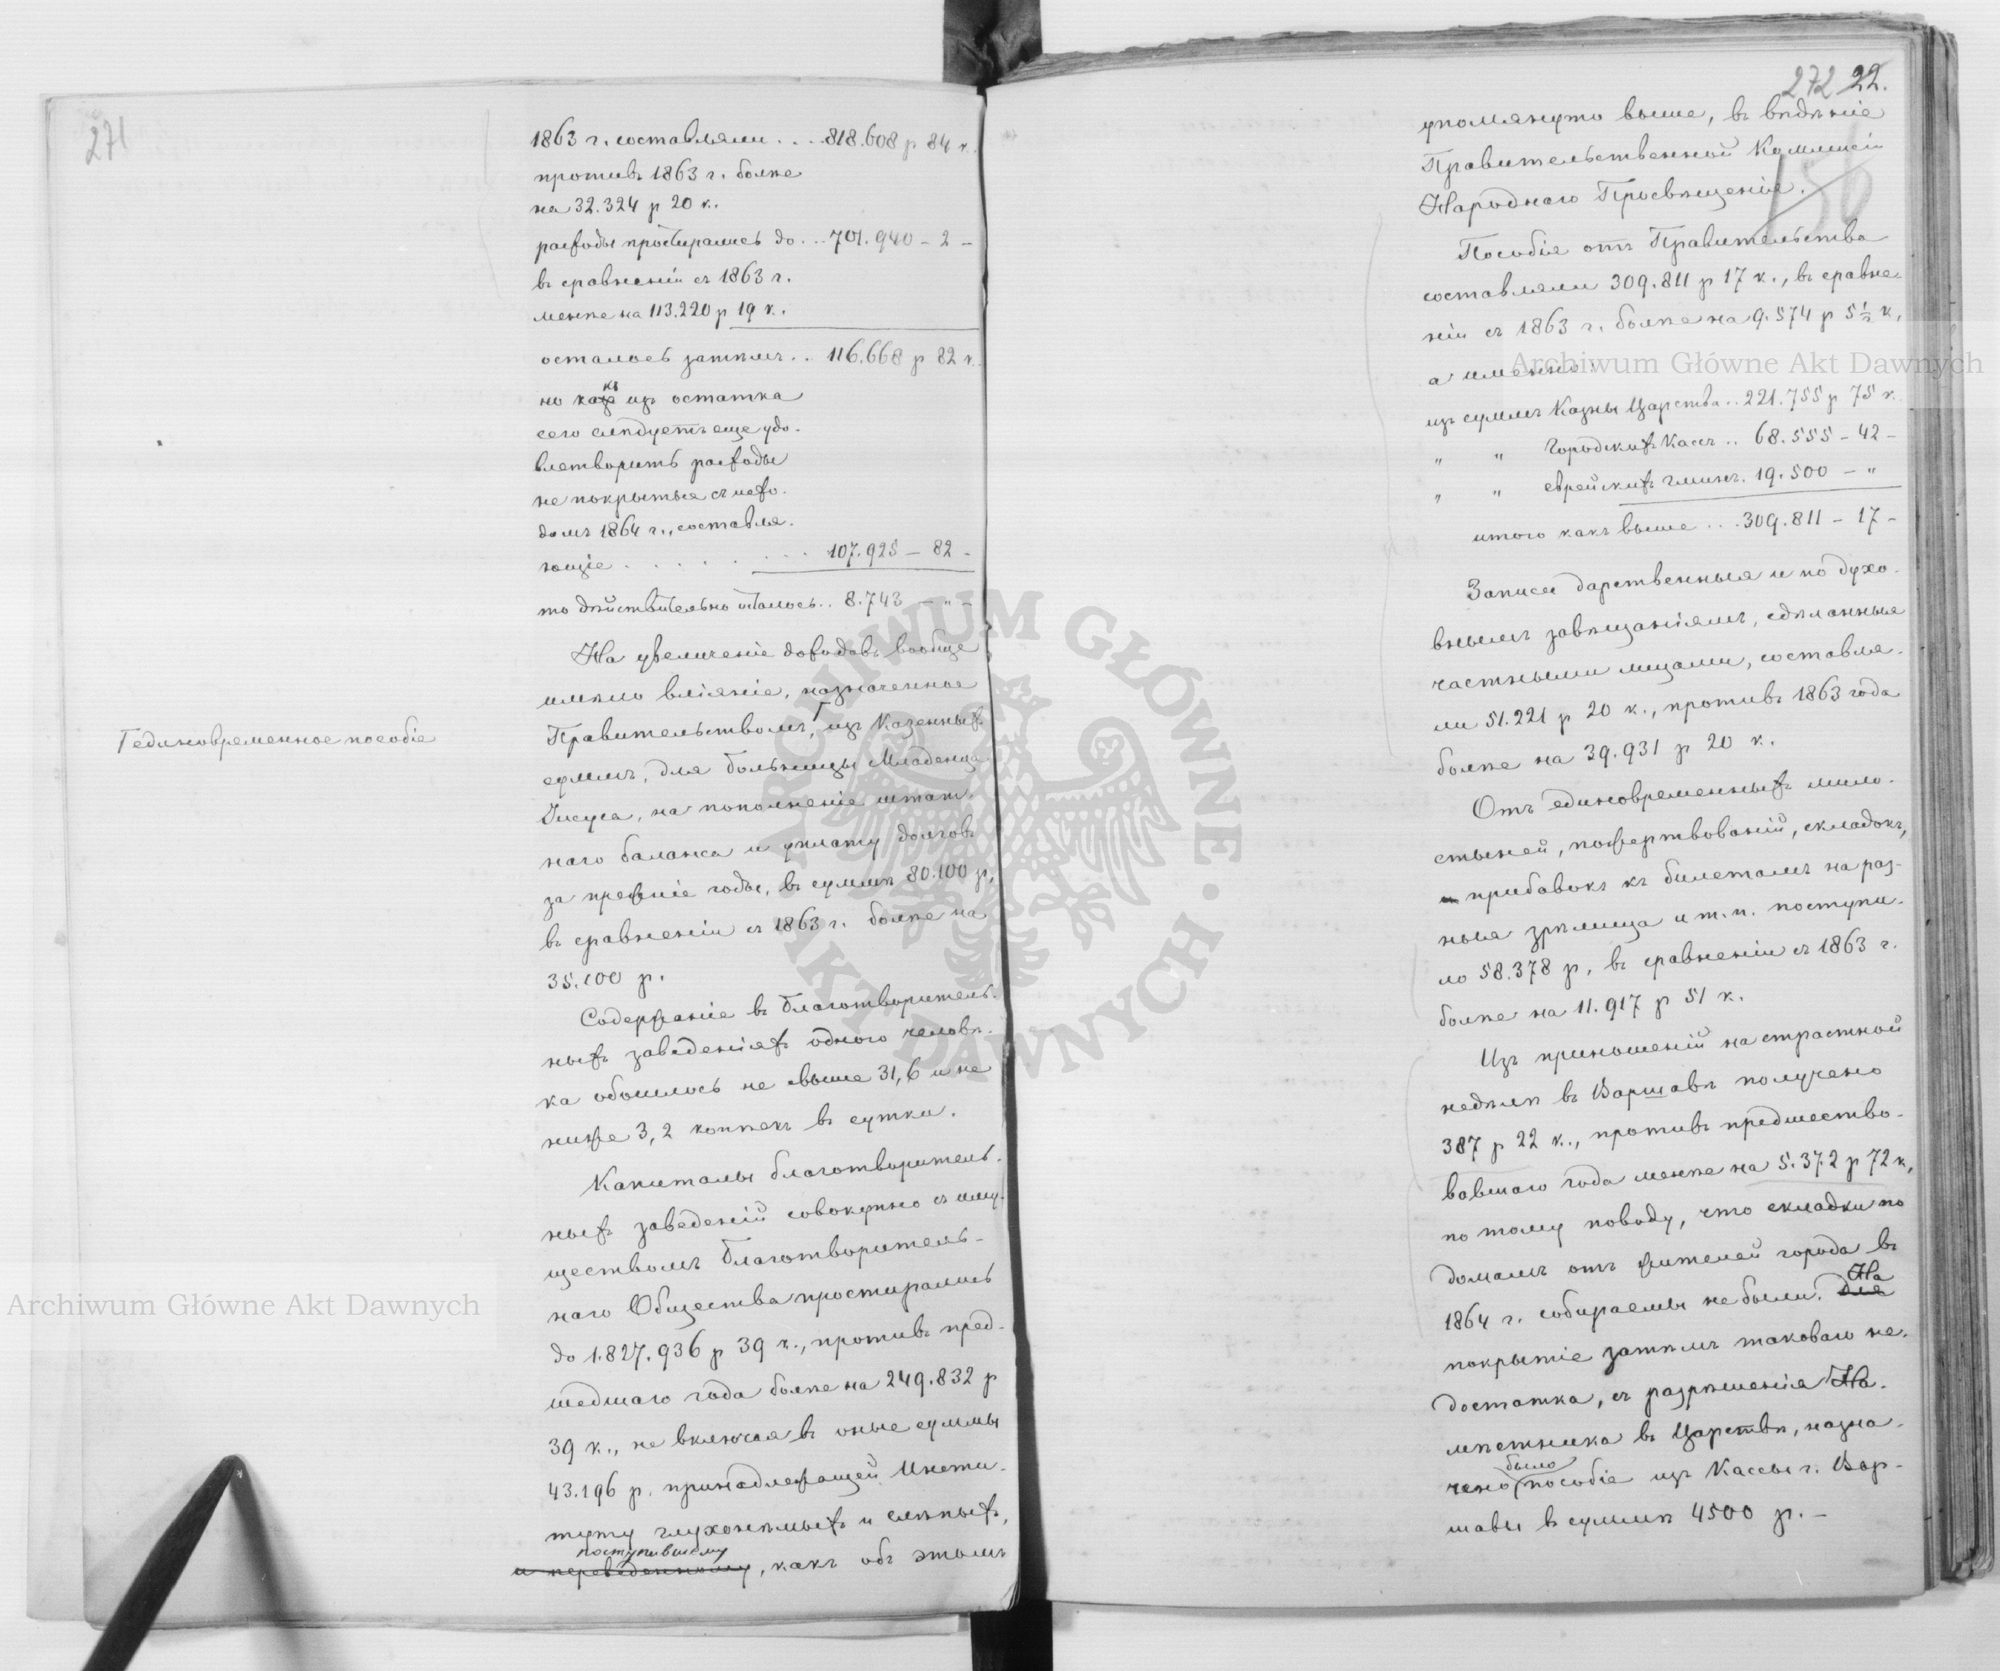 271
1863 г. составляли . . . . 818.608 р 84 к.
противъ 1863 г. болѣе
на 32.324 р 20 к.
расходы простирались до . . . 701.940 – 2 –
въ сравненіи съ 1863 г.
менѣе на 113.220 р 19 к.
осталось затѣмъ . . 116.668 р 82 к.
но какъ изъ остатка
сего слѣдуетъ еще удо-
влетворить расходы
не покрытые съ исхо-
домъ 1864 г., составля-
ющіе . . . . . . . . 107.925 – 82 –
то дѣйствительно осталось . . 8.743 – " –
На увеличеніе доходовъ вообще
имѣло вліяніе, назначенное
Правительствомъ, Г изъ Казенныхъ
суммъ, для больницы Младенца
Іисуса, на пополненіе штат-
наго баланса и уплату долговъ
за прежніе годы, въ суммѣ 80.100 р,
въ сравненіи съ 1863 г. болѣе на
35.100 р.
Содержаніе въ благотворитель-
ныхъ заведеніяхъ одного человѣ-
ка обошлось не свыше 31,6 и не
ниже 3,2 копѣекъ въ сутки.
Капиталы благотворитель-
ныхъ заведеній совокупно съ иму-
ществомъ Благотворитель-
наго Общества простирались
до 1.827.936 р 39 к., противъ пред-
шедшаго года болѣе на 249.832 р
39 к., не включая въ оные суммы
43.196 р. принадлежащей Инсти-
туту глухонѣмыхъ и слѣпыхъ,
поступившему
и переведенному, какъ объ этомъ
Г единовременное пособіе
272 22.
156
упомянуто выше, въ вѣдѣніе
Правительственной Коммисіи
Народнаго Просвѣщенія.
Пособія отъ Правительства
составляли 309.811 р 17 к., въ сравне-
ніи съ 1863 г. болѣе на 9.574 р 5½ к,
а именно:
изъ суммъ Казны Царства . . 221.755 р 75 к
" " Городскихъ Кассъ . . 68.555 – 42 –
" " еврейскихъ гминъ . 19.500 – "
итого какъ выше . . . 309.811 – 17 –
Записи дарственныя и по духо-
внымъ завѣщаніямъ, сдѣланныя
частными лицами, составля-
ли 51.221 р 20 к., противъ 1863 года
болѣе на 39.931 р 20 к.
Отъ единовременныхъ мило-
стыней, пожертвованій, складокъ,
и прибавокъ къ билетамъ на раз-
ныя зрѣлища и т. п. поступи-
ло 58.378 р, въ сравненіи съ 1863 г.
болѣе на 11.917 р 51 к.
Изъ приношеній на страстной
недѣлѣ въ Варшавѣ получено
387 р 22 к., противъ предшество-
вавшаго года менѣе на 5.372 р 72 к,
по тому поводу, что складки по
домамъ отъ жителей города въ
1864 г. собираемы не были. Для На
покрытіе затѣмъ таковаго не-
достатка, съ разрѣшенія На-
мѣстника въ Царствѣ, назна-
чено было пособіе изъ Кассы г. Вар-
шавы въ суммѣ 4500 р. –
Archiwum Główne Akt Dawnych
Archiwum Główne Akt Dawnych
ARCHIWUM GŁÓWNE · AKT DAWNYCH ·